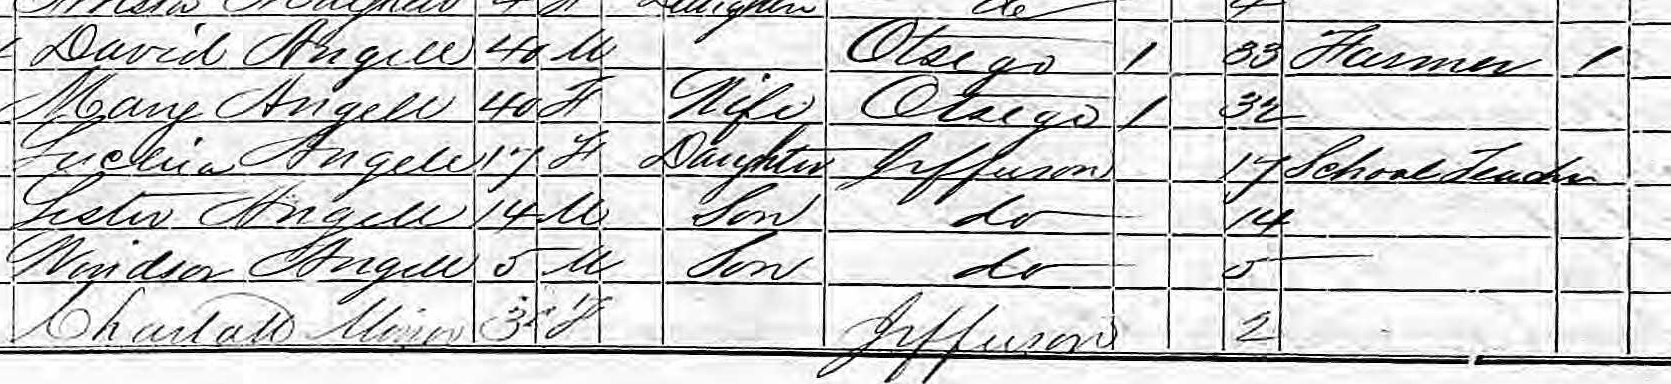 4 F Daughter do 4
David Angell 40 M Otsego 1 33 Farmer 1
Mary Angell 40 F Wife Otsego 1 32
Lucelia Angell 17 F Daughter Jefferson 17 School Teacher
Lester Angell 14 M Son do 14
Windsor Angell 5 M Son do 5
Charlott Minor 32 F Jefferson 2